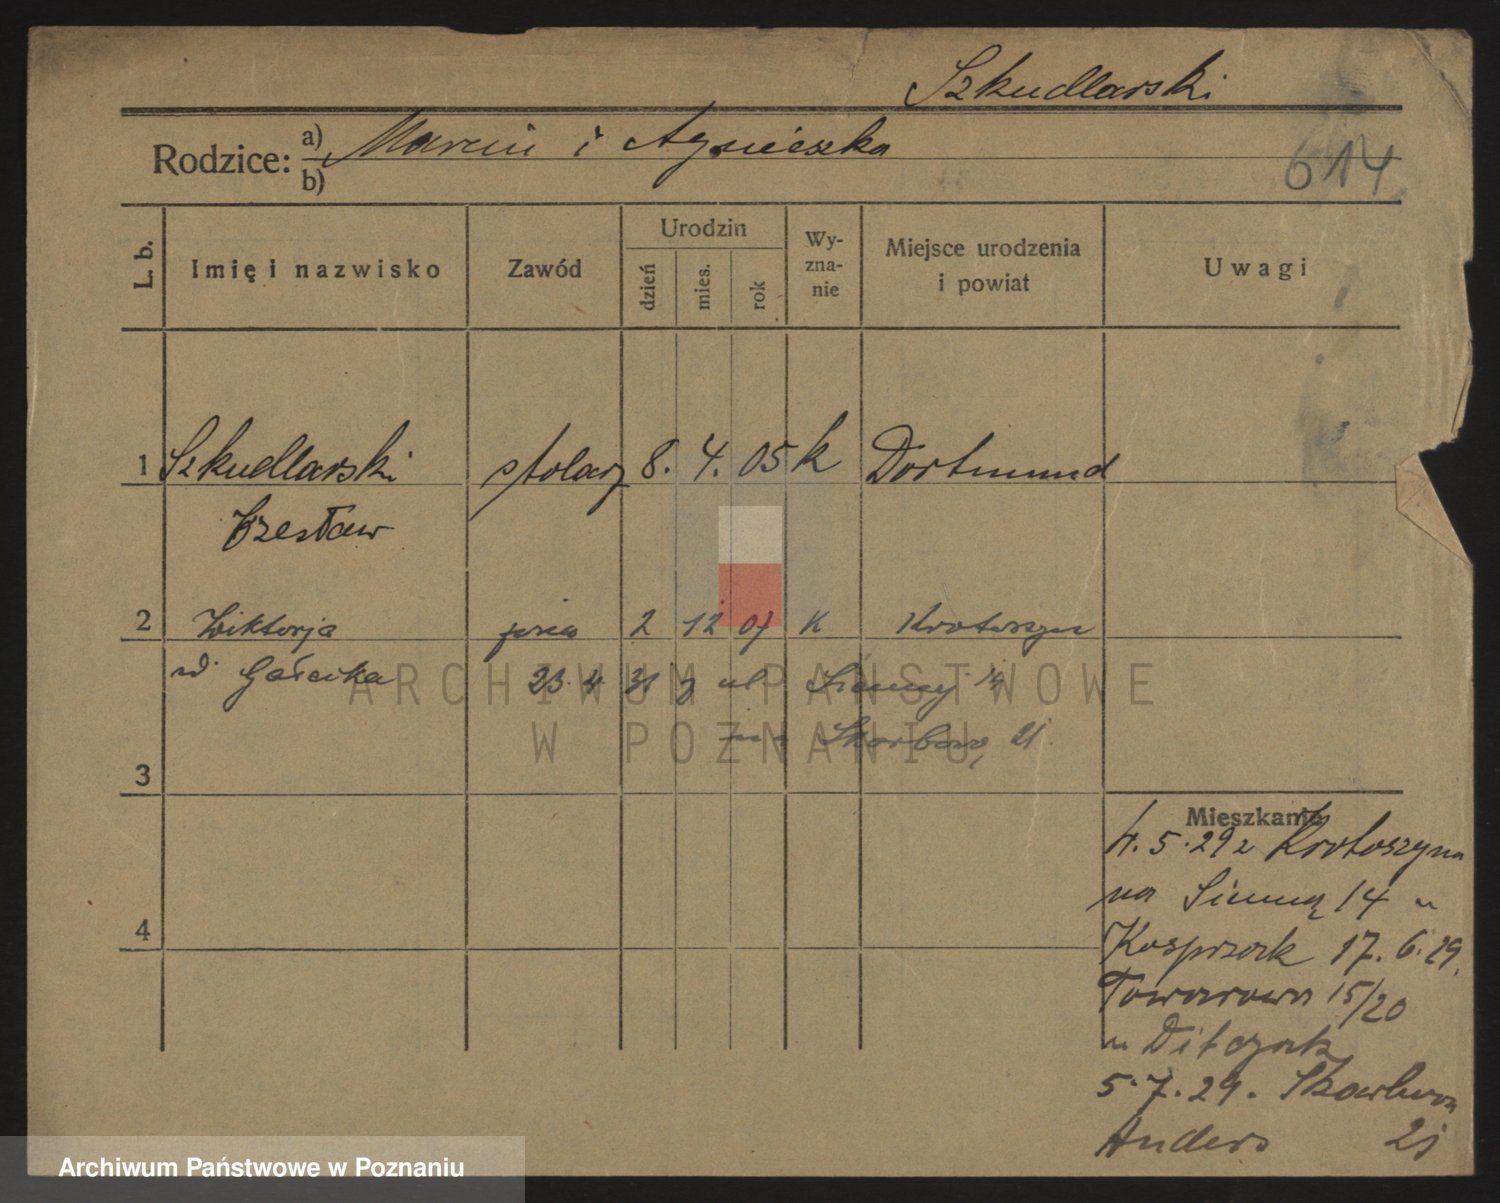 Szkudlarski
Rodzice: a) Marcin i Agnieszka
b)
614
L. b.
Imię i nazwisko
Zawód
Urodzin
dzień
mies.
rok
Wy-
zna-
nie
Miejsce urodzenia
i powiat
Uwagi
1 Szkudlarski stolarz 8. 4. 05 K Dortmund
Czesław
2 Wiktorja 2 12 07 K Krotoszyn
23. 4. 31 z ul. Siennej 14
na Skarbow, 21.
3
4
Mieszkanie
4. 5. 29 z Krotoszyna
na Sienną 14 u
Kasprzak 17. 6. 29.
Towarowa 15/20
u Ditczak
5. 7. 29. Skarbowa
Anders 21
ARCHIWUM PAŃSTWOWE
W POZNANIU
Archiwum Państwowe w Poznaniu